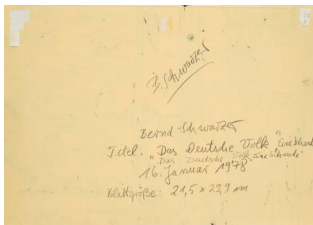 B. Schwarzer
Bernd Schwarzer
Titel: "Das Deutsche Volk"
"Das Deutsche Volk Eine Schande"
16. Januar 1978
Blattgröße: 21,5 x 29,9 cm